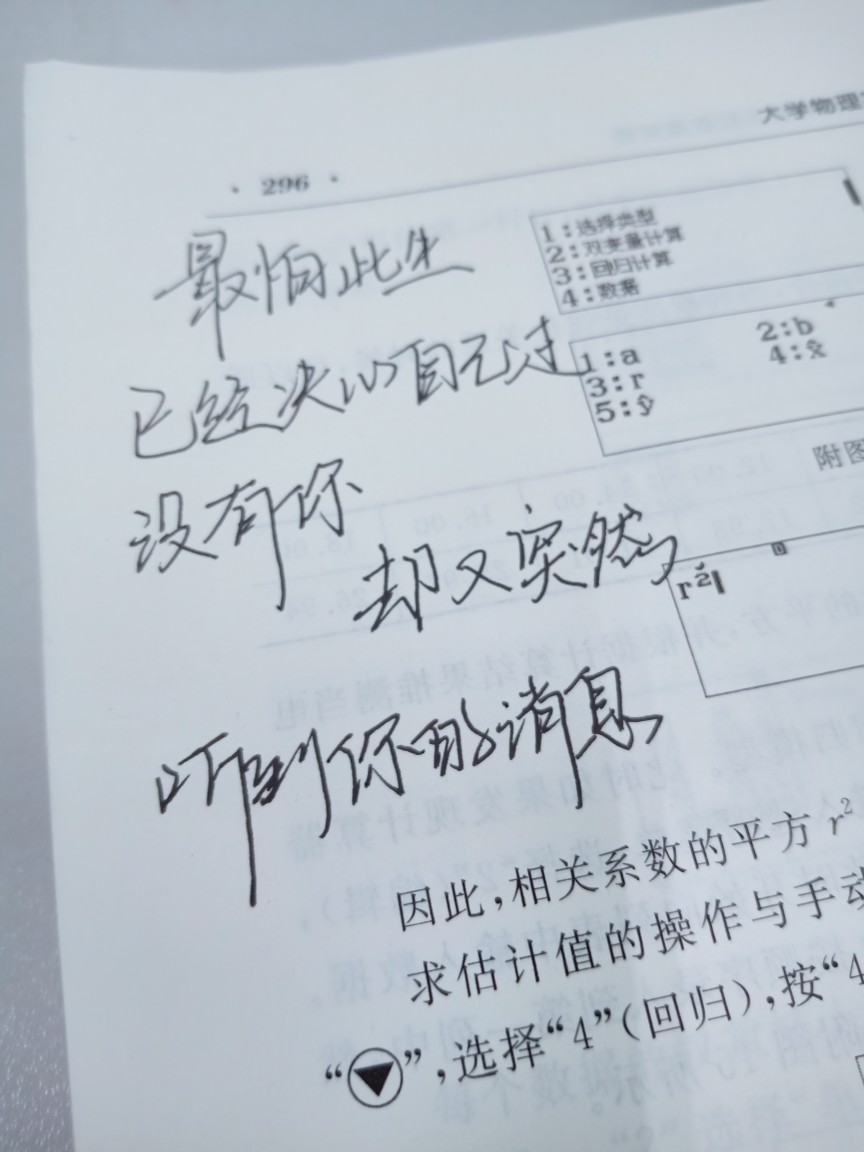 · 296 ·
大学物理
1:选择类型
2:双变量计算
3:回归计算
4:数据
最怕此生
1:a 2:b
3:r 4:x̂
5:ŷ
已经决心自己过
附图
没有你
却又突然
r²
听到你的消息
因此,相关系数的平方 r²
求估计值的操作与手动
“▼”,选择“4”(回归),按“4